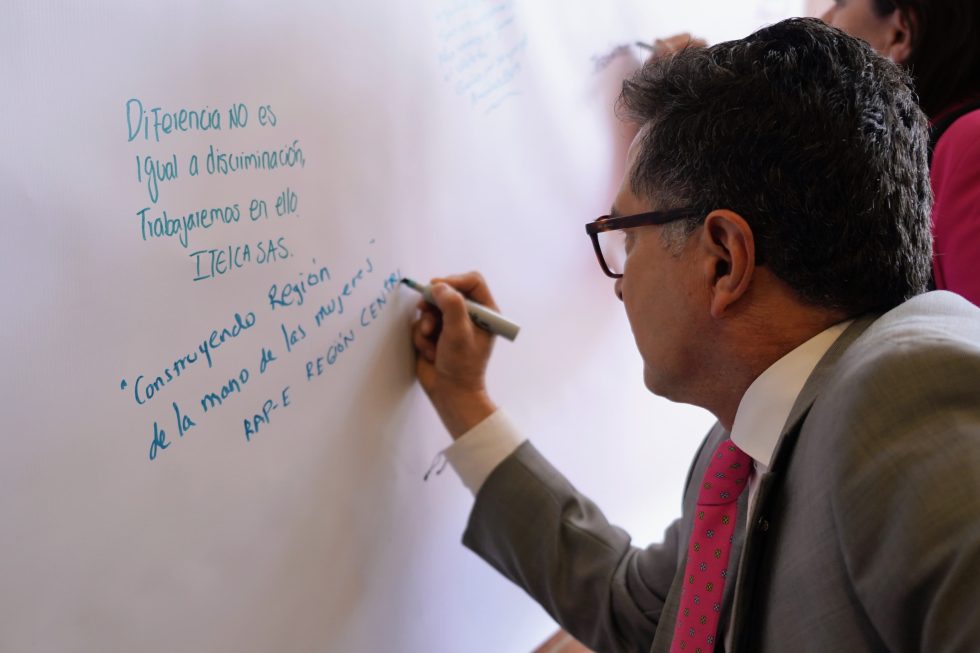 DIFERENCIA NO ES
IGUAL A discriminación,
Trabajaremos en ello.
ITELCA SAS.
"Construyendo Región
de la mano de las mujeres"
RAP-E REGIÓN CENTRAL